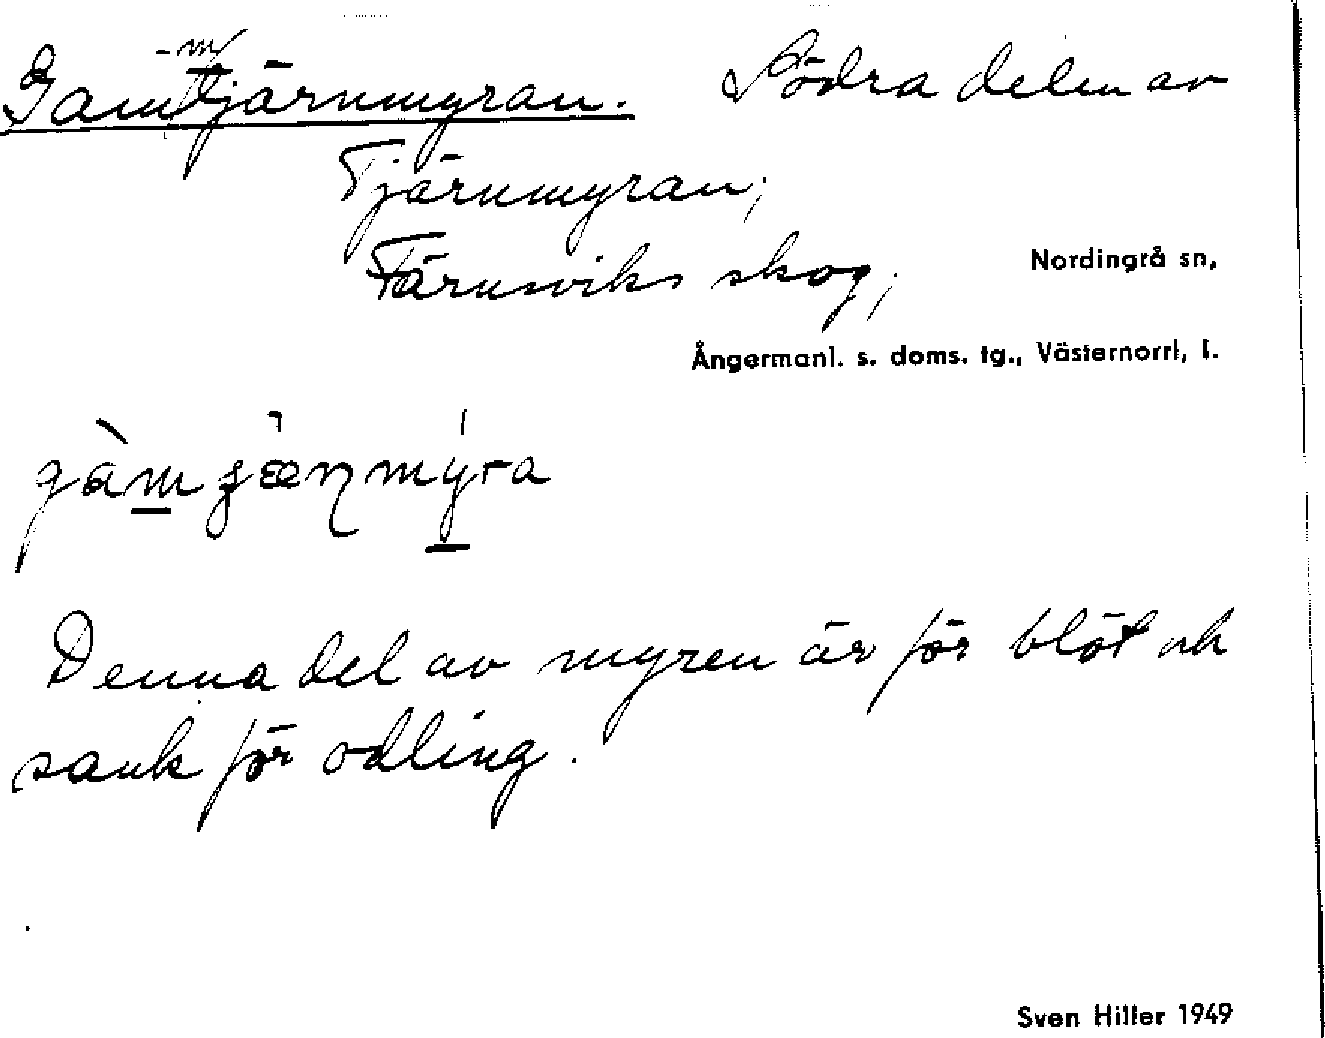 Gammtjärnmyran. Södra delen av
Tjärnmyran;
Färnsviks skog,
Nordingrå sn,
Ångermanl. s. doms. tg., Västernorrl, l.
Denna del av myren är för blöt och
sank för odling.
Sven Hiller 1949